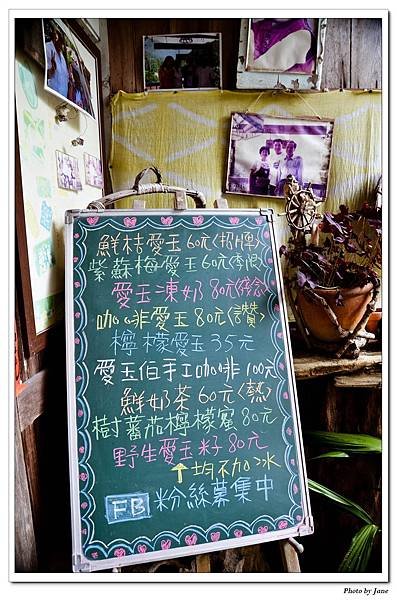 鮮桔愛玉60元(招牌)
紫蘇梅愛玉60元(季限)
愛玉凍奶80元
咖啡愛玉80元(讚)
檸檬愛玉35元
愛玉伯手工咖啡100元
鮮奶茶60元(熱)
樹蕃茄檸檬蜜80元
野生愛玉籽80元
↑均不加冰
FB 粉絲募集中
Photo by Jane